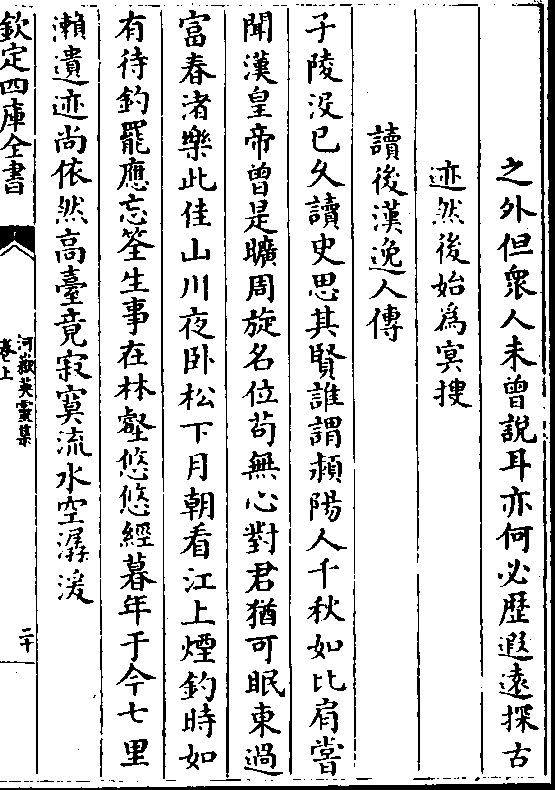 之外但衆人未曾說耳亦何必歴遐遠探古
迹然後始爲㝠搜
讀後漢逸人傳
子陵没已久讀史思其賢誰謂潁陽人千秋如比肩嘗
聞漢皇帝曾是曠周旋名位苟無心對君猶可眠東過
富春渚樂此佳山川夜卧松下月朝看江上煙釣時如
有待釣罷應忘筌生事在林壑悠悠經暮年于今七里
瀨遺迹尚依然高臺竟寂寞流水空潺湲
欽定四庫全書
河嶽英靈集
卷上
二十